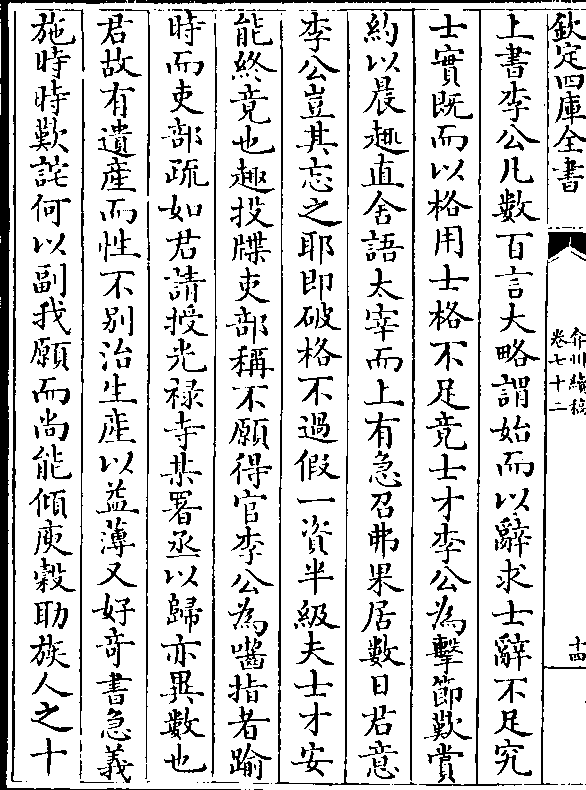 欽定四庫全書
弇州續稿
卷七十二
十四
上書李公凡數百言大略謂始而以辭求士辭不足究
士實既而以格用士格不足竟士才李公為擊節歎賞
約以晨趣直舍語太宰而上有急召弗果居數日君意
李公豈其忘之耶即破格不過假一資半級夫士才安
能終竟也趣投牒吏部稱不願得官李公為嚙指者踰
時而吏部疏如君請授光祿寺某署丞以歸亦異數也
君故有遺產而性不別治生產以益薄又好奇書急義
施時時歎詫何以副我願而尚能傾庾糓助族人之十